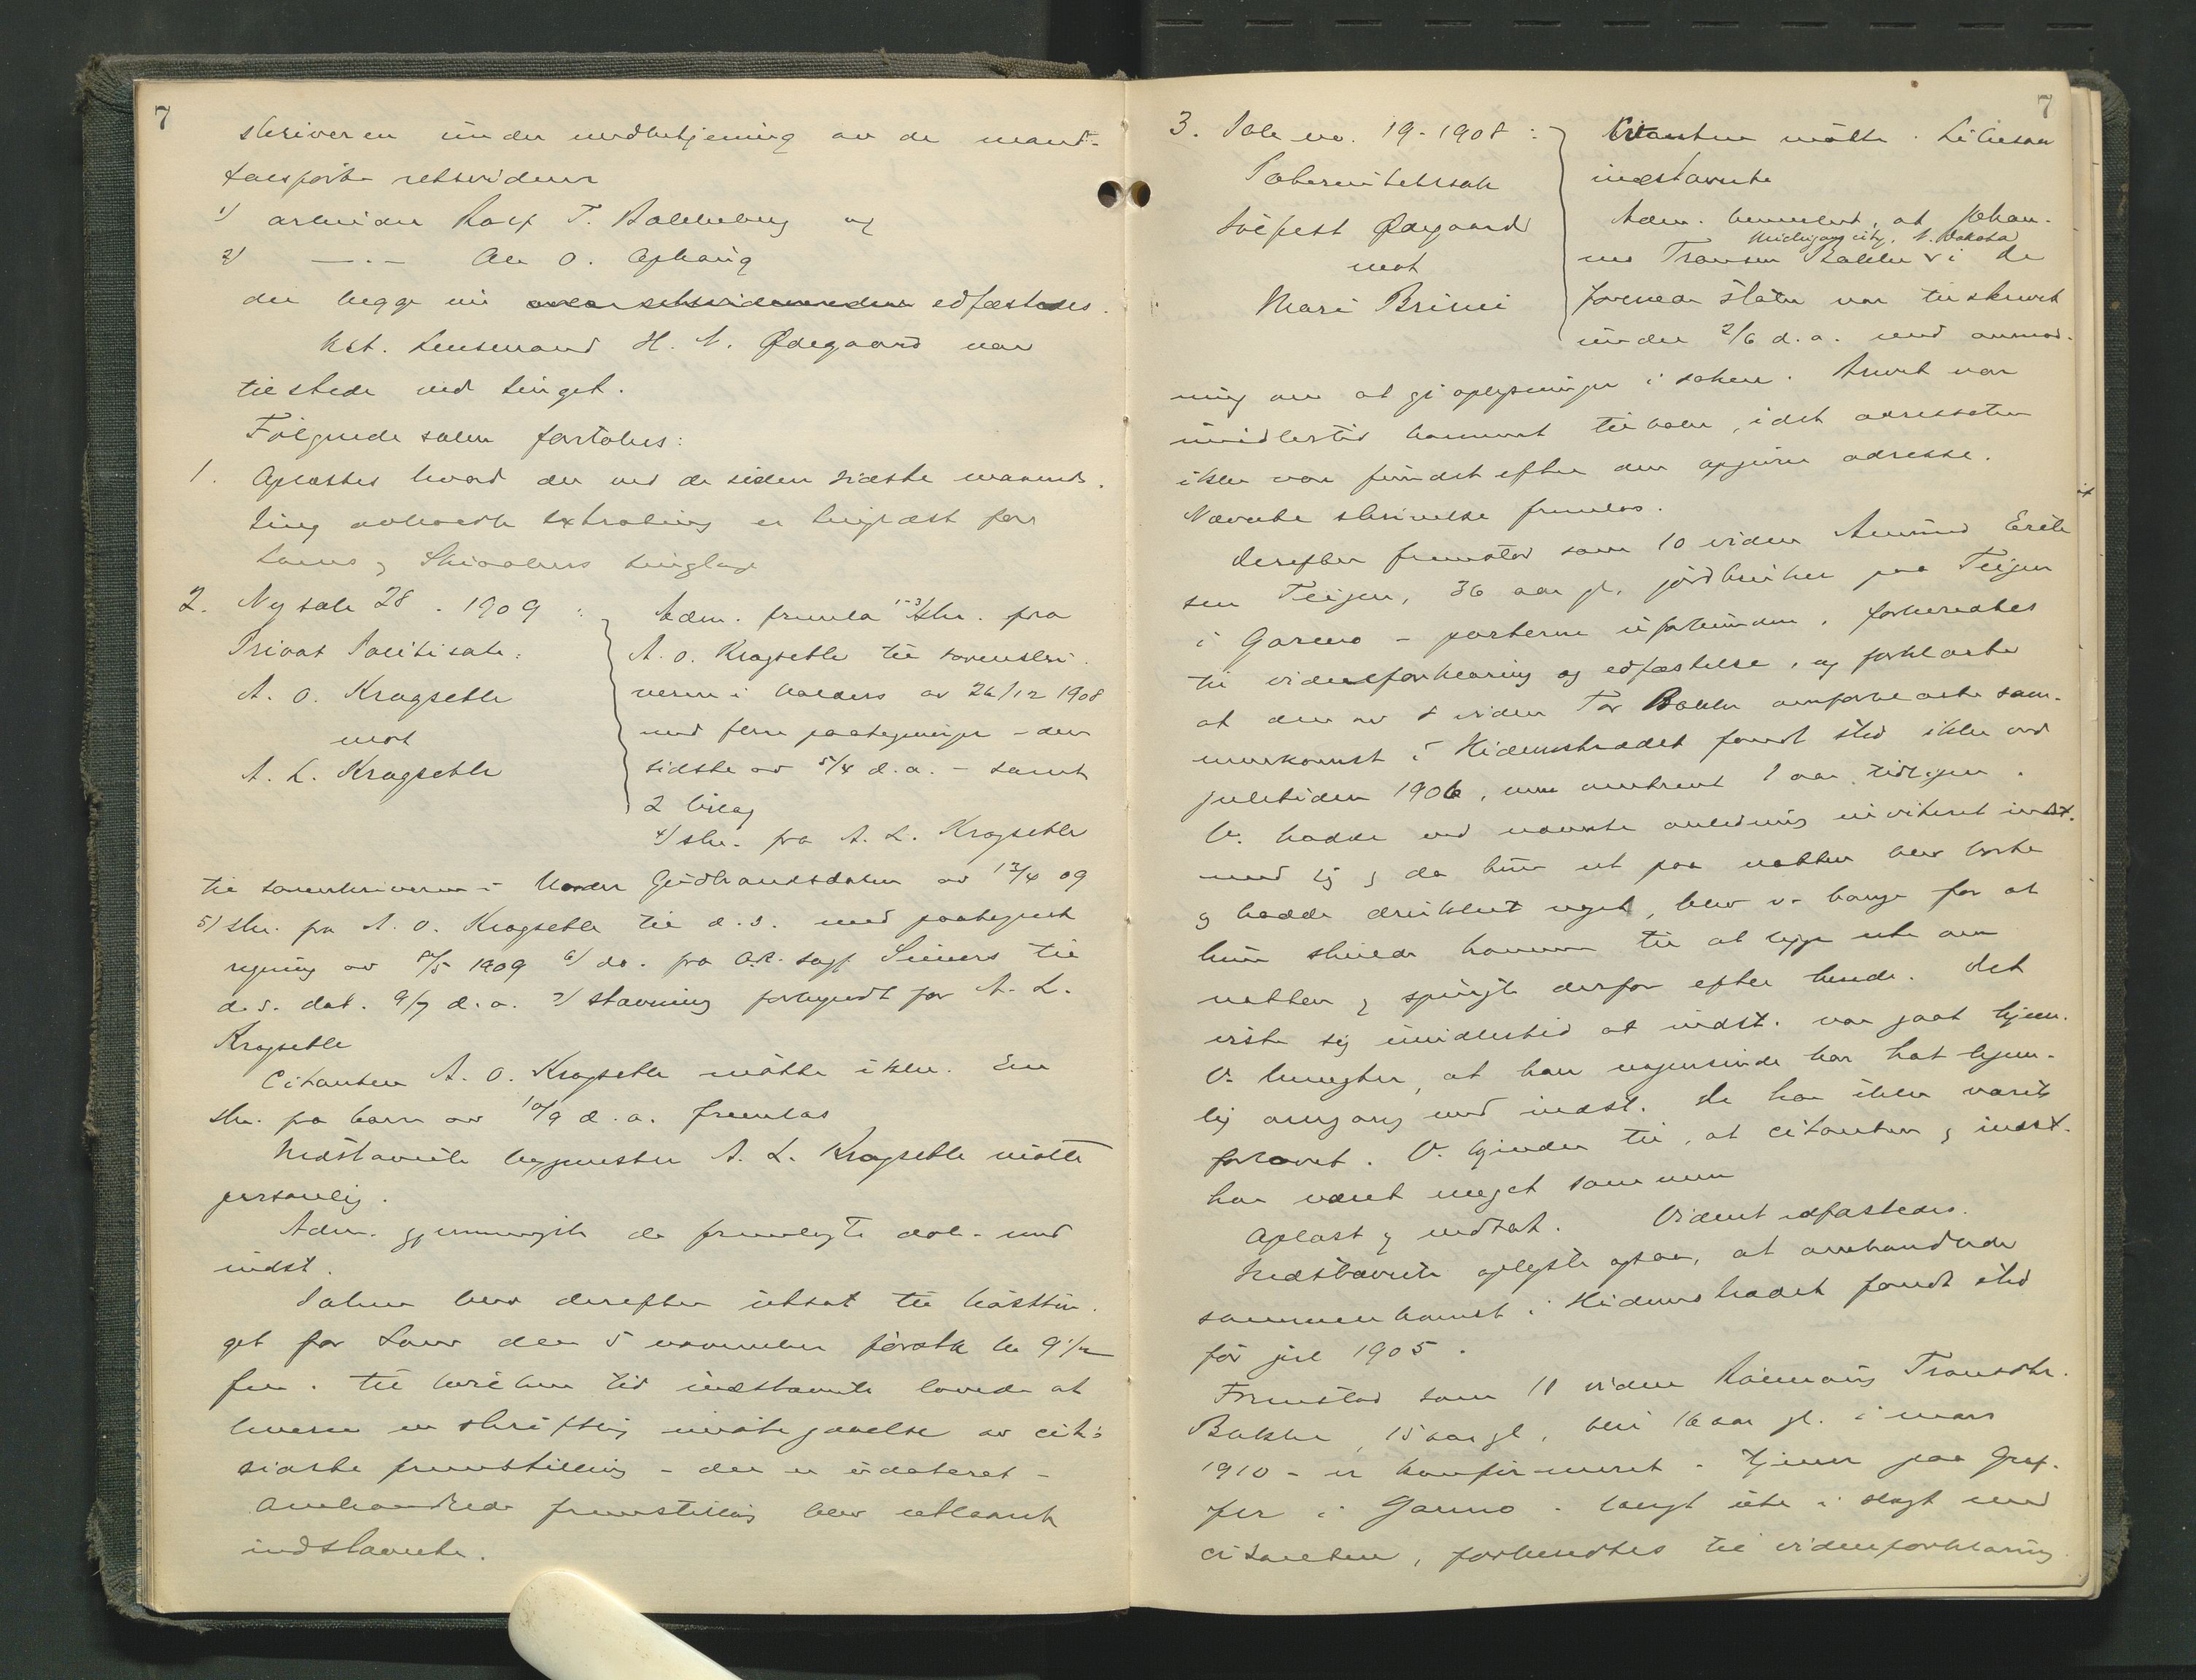 7
skriveren under medbetjening av de mand-
talsførte retsvidner
1) arbeider Rolf T. Bakkeberg og
2) —..— Ole O. Ophaug
der begge nu edfæstedes.
Kst. Lensmand H. N. Ødegaard var
tilstede ved tinget.
Følgende saker foretokes:
1. Oplæstes hvad der ved de siden sidste maaneds-
ting avholdte extrating er tinglæst for
Loms og Skiaakers tinglag
2. Ny sak 28 - 1909:
Privat Politisak:
A. O. Kragseth
mot
A. L. Kragseth
Adm. fremla 1-3) skr. fra
A. O. Kragseth til sorenskri-
veren i Valders av 26/12 1908
med flere paategninger - den
sidste av 5/4 d.a. - samt
2 bilag
4) skr. fra A. L. Kragseth
til sorenskriveren i Nordre Gudbrandsdalen av 13/4 09
5) skr. fra A. O. Kragseth til d.s. med paategnet
regning av 1909 6) do. fra O.R. sagf. til
d.s. dat. 9/7 d.a. 7) stævning forkyndt for A. L.
Kragseth
Citanten A. O. Kragseth møtte ikke. En
skr. fra ham av 10/9 d.a. fremlas
Indstævnte bygmester A. L. Kragseth møtte
personlig.
Adm. gjennemgik de fremlagte dok. med
indst.
Saken blev derefter utsat til høsttin-
get for Lom den 5 november førstk kl 9 1/2
fm. til hvilken tid indstævnte lovede at
levere en skriftlig imøtegaaelse av cit's
sidste fremstilling - der er udateret -
Omhandlede fremstilling blev utlaant
indstævnte.
7
3. Sak no. 19 - 1908:
Paternitetssak
Ødegaard
mot
Mari Brimi
Citanten møtte. Likesaa
indstævnte
Adm. bemerket, at Johan-
nes Transen Bakken v i de
Michigan city, N. Dakota
forenede stater var tilskrevet
under 2/6 d.a. med anmod-
ning om at gi oplysninger i saken. Brevet var
imidlertid kommet tilbake, idet adressaten
ikke var fundet efter den opgivne adresse.
Nævnte skrivelse fremlas.
Derefter fremstod som 10 vidne Amund Erik-
sen Teigen, 36 aar gl. jordbruker paa Teigen
i Garmo - parterne uforbunden, formanedes
til vidneforklaring og edfæstelse, og forklarte
at den av 8 vidne Tor Bakken omforklarte sam-
menkomst i Kidemsbrædet fandt sted ikke ved
juletiden 1906, men omtrent 1 aar tidligere.
V. hadde ved nævnte anledning inviteret indst.
med sig og da hun ut paa natten blev borte
og hadde drukket noget, blev v. bange for at
hun skulde komme til at ligge ute om
natten og sprang derfor efter hende. Det
viste sig imidlertid at indst. var gaat hjem.
V. benegter, at han nogensinde har hat legem-
lig omgang med indst. De har ikke været
forlovet. V. kjender til, at citanten og indst.
har været meget sammen
Oplæst og vedtat. Vidnet edfæstedes.
Indstævnte oplyste ogsaa, at omhandlede
sammenkomst i fandt sted
før jul 1905.
Fremstod som 11 vidne Transdtr.
Bakken, 15 aar gl., blir 16 aar gl. i mars
1910 - er konfirmeret - tjener paa Graf-
fer i Garmo - langt ute i slegt med
citanten, formanedes til vidneforklaring